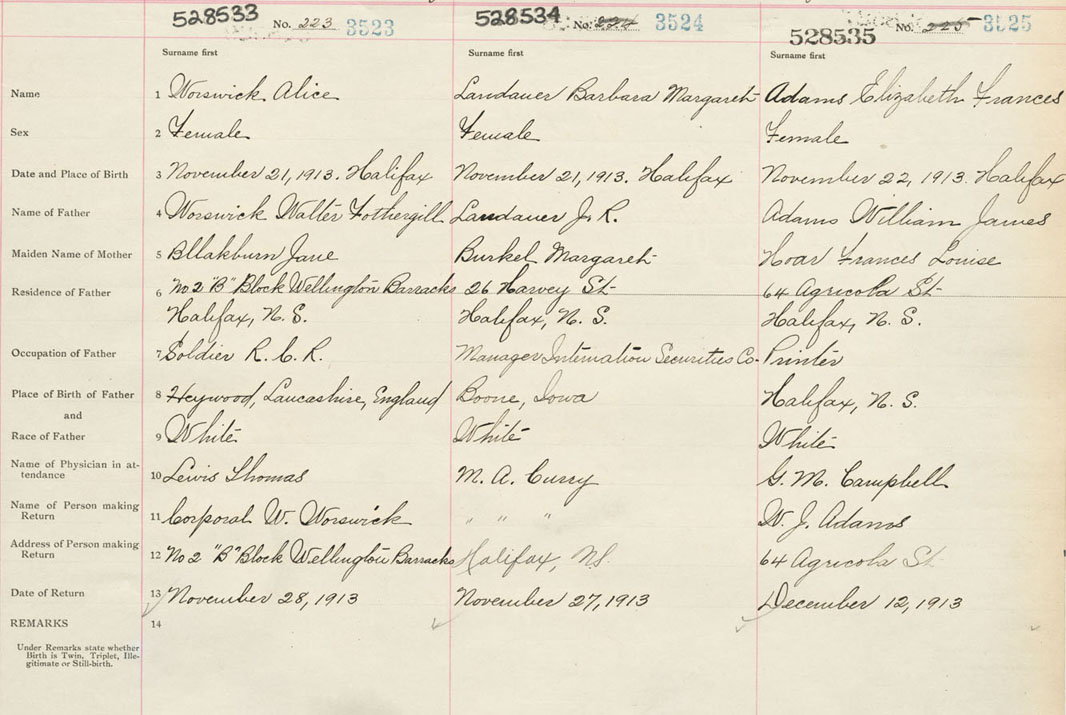 528533 No. 223 3523 528534 No. 224 3524 528535 No. 225 3525
Surname first Surname first Surname first
Name 1 Worswick Alice Landauer Barbara Margaret Adams Elizabeth Frances
Sex 2 Female Female Female
Date and Place of Birth 3 November 21, 1913. Halifax November 21, 1913. Halifax November 22, 1913. Halifax
Name of Father 4 Worswick Walter Fothergill Landauer J. R. Adams William James
Maiden Name of Mother 5 Bllakburn Jane Burkel Margaret Hoar Frances Louise
Residence of Father 6 No 2 "B" Block Wellington Barracks 26 Harvey St 64 Agricola St
Halifax, N. S. Halifax, N. S. Halifax, N. S.
Occupation of Father 7 Soldier R. C. R. Manager Internation Securities Co. Printer
Place of Birth of Father 8 Heywood, Lancashire, England Boone, Iowa Halifax, N. S.
and
Race of Father 9 White White White
Name of Physician in at-
tendance 10 Lewis Thomas M. A. Curry G. M. Campbell
Name of Person making
Return 11 Corporal W. Worswick " " " W. J. Adams
Address of Person making
Return 12 No 2 "B" Block Wellington Barracks Halifax, NS. 64 Agricola St
Date of Return 13 November 28, 1913 November 27, 1913 December 12, 1913
REMARKS 14
Under Remarks state whether
Birth is Twin, Triplet, Ille-
gitimate or Still-birth.